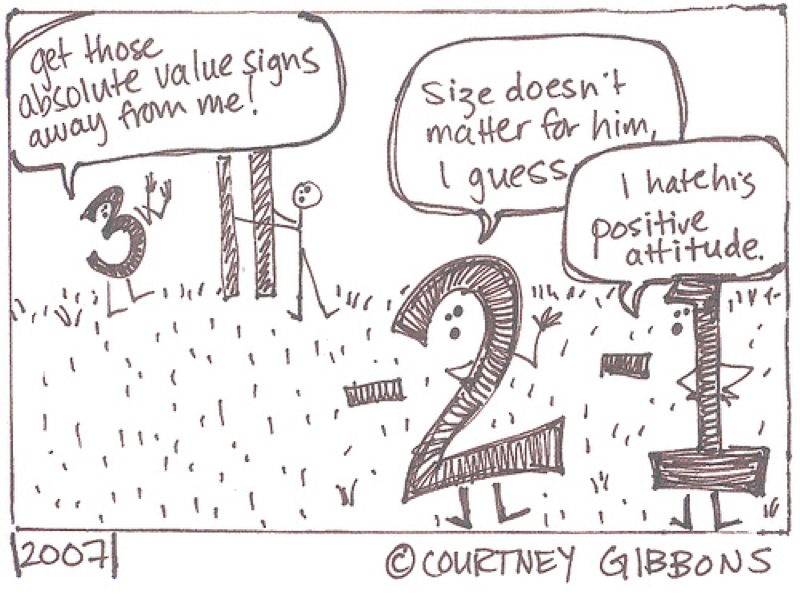 get those
absolute value signs
away from me!
Size doesn't
matter for him,
I guess.
I hate his
positive
attitude.
3
-2
-1
|2007|
©COURTNEY GIBBONS